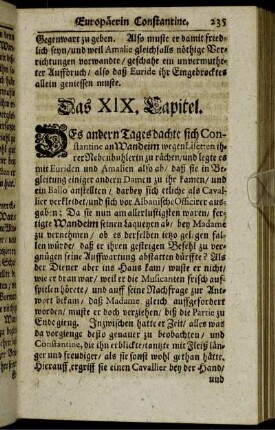 Europäerin Constantine. 235
Gegenwart zu geben. Also muste er damit fried-
lich seyn/ und weil Amalie gleichfalls nöthige Ver-
richtungen vorwandte/ geschahe ein unvermuthe-
ter Auffbruch/ also daß Euride ihr Eingebrocktes
allein geniessen muste.
Das XIX. Capitel.
DEs andern Tages dachte sich Con-
stantine an Wandeim wegen Lisetten ih-
rer Nebenbuhlerin zu rächen/ und legte es
mit Euriden und Amalien also ab/ daß sie in Be-
gleitung einiger andern Damen zu ihr kamen/ und
ein Ballo anstelleten/ darbey sich etliche als Caval-
lier verkleidet/und sich vor Albanische Officirer aus-
gaben: Da sie nun am allerlustigsten waren/ fer-
tigte Wandeim seinen Laqueyn ab/ bey Madame
zu vernehmen/ ob es derselben itzo gelegen fal-
len würde/ daß er ihren gestrigen Befehl zu ver-
gnügen seine Auffwartung abstatten dürffte? Als
der Diener aber ins Haus kam/ wuste er nicht/
wie er dran war/ weil er die Musicanten frisch auff-
spielen hörete/ und auff seine Nachfrage zur Ant-
wort bekam/ daß Madame gleich auffgefordert
worden/ muste er doch verziehen/ biß die Partie zu
Ende gieng. Inzwischen hatte er Zeit/ alles was
da vorgienge desto genauer zu beobachten/ und
Constantine, die ihn erblickte/tantzte mit Fleiß län-
ger und freudiger/ als sie sonst wohl gethan hätte.
Hierauff ergriff sie einen Cavallier bey der Hand/
und